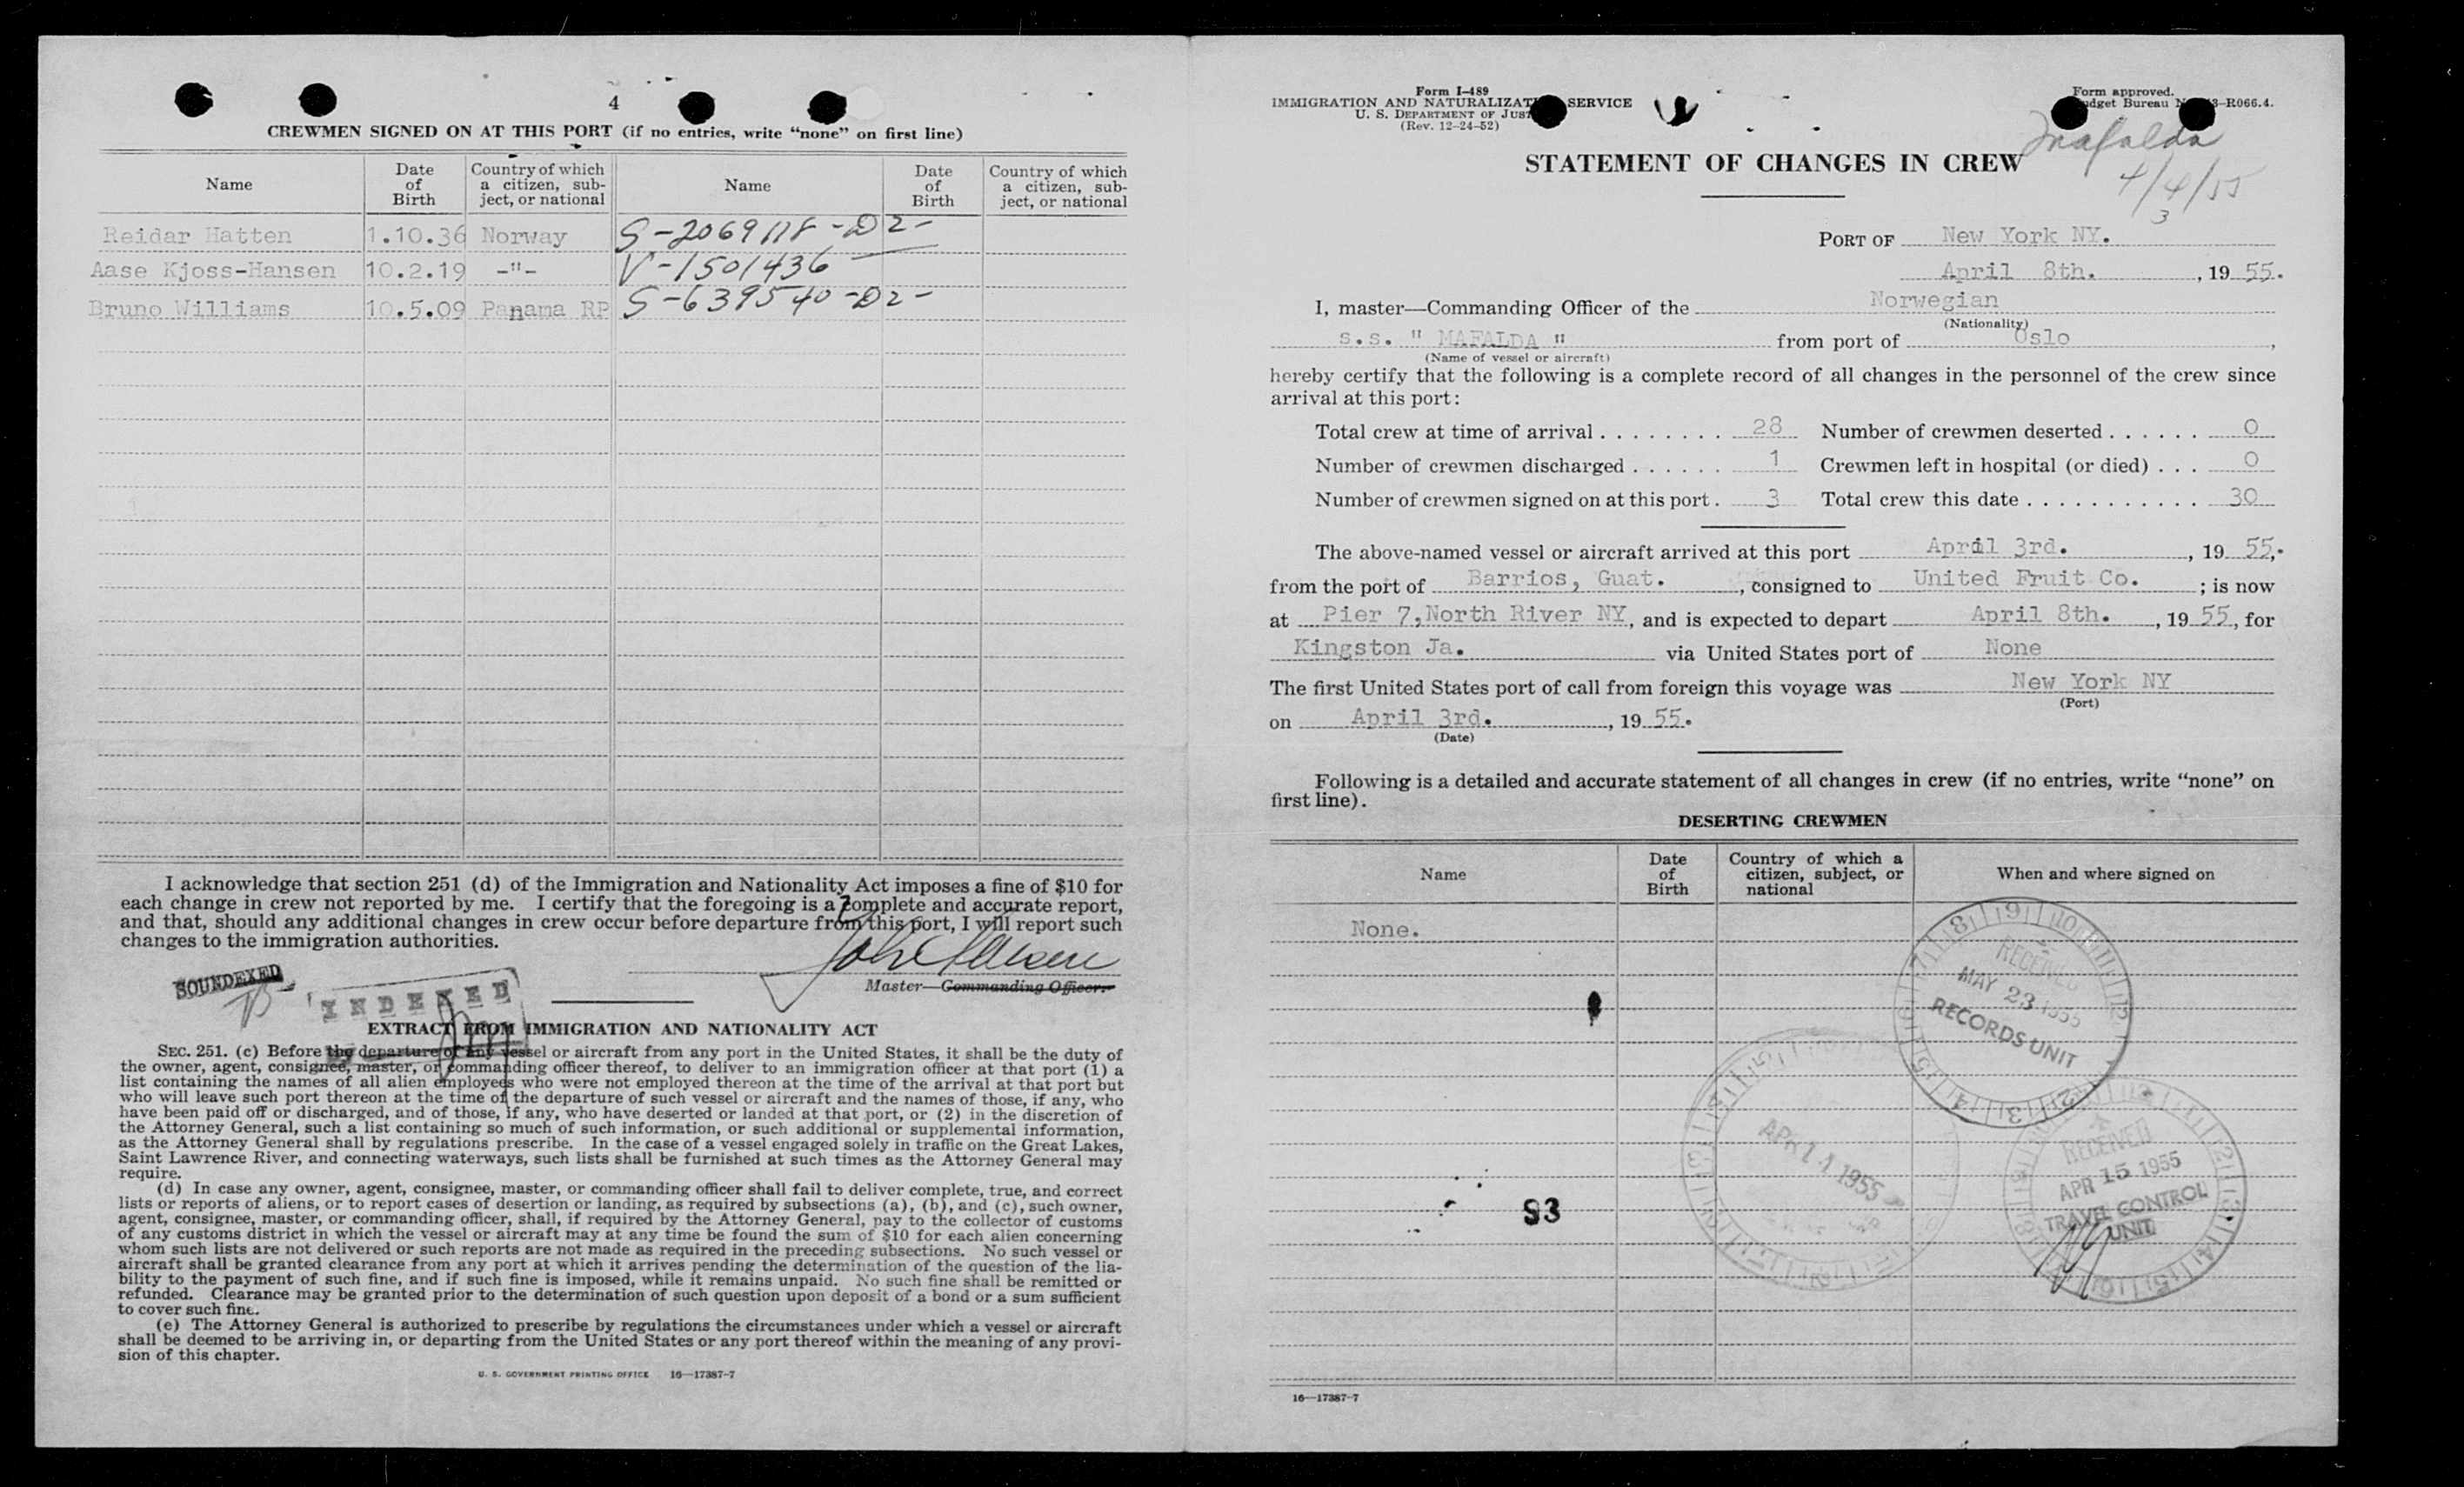 4
CREWMEN SIGNED ON AT THIS PORT (if no entries, write “none” on first line)
Name | Date of Birth | Country of which a citizen, subject, or national | Name | Date of Birth | Country of which a citizen, subject, or national
Reidar Hatten 1.10.36 Norway S-2069118-D2-
Aase Kjoss-Hansen 10.2.19 -"- V-1501436
Bruno Williams 10.5.09 Panama RP S-639540-D2-
I acknowledge that section 251 (d) of the Immigration and Nationality Act imposes a fine of $10 for
each change in crew not reported by me. I certify that the foregoing is a complete and accurate report,
and that, should any additional changes in crew occur before departure from this port, I will report such
changes to the immigration authorities.
Master—Commanding Officer.
SOUNDEXED
INDEXED
EXTRACT FROM IMMIGRATION AND NATIONALITY ACT
SEC. 251. (c) Before the departure of any vessel or aircraft from any port in the United States, it shall be the duty of
the owner, agent, consignee, master, or commanding officer thereof, to deliver to an immigration officer at that port (1) a
list containing the names of all alien employees who were not employed thereon at the time of the arrival at that port but
who will leave such port thereon at the time of the departure of such vessel or aircraft and the names of those, if any, who
have been paid off or discharged, and of those, if any, who have deserted or landed at that port, or (2) in the discretion of
the Attorney General, such a list containing so much of such information, or such additional or supplemental information,
as the Attorney General shall by regulations prescribe. In the case of a vessel engaged solely in traffic on the Great Lakes,
Saint Lawrence River, and connecting waterways, such lists shall be furnished at such times as the Attorney General may
require.
(d) In case any owner, agent, consignee, master, or commanding officer shall fail to deliver complete, true, and correct
lists or reports of aliens, or to report cases of desertion or landing, as required by subsections (a), (b), and (c), such owner,
agent, consignee, master, or commanding officer, shall, if required by the Attorney General, pay to the collector of customs
of any customs district in which the vessel or aircraft may at any time be found the sum of $10 for each alien concerning
whom such lists are not delivered or such reports are not made as required in the preceding subsections. No such vessel or
aircraft shall be granted clearance from any port at which it arrives pending the determination of the question of the lia-
bility to the payment of such fine, and if such fine is imposed, while it remains unpaid. No such fine shall be remitted or
refunded. Clearance may be granted prior to the determination of such question upon deposit of a bond or a sum sufficient
to cover such fine.
(e) The Attorney General is authorized to prescribe by regulations the circumstances under which a vessel or aircraft
shall be deemed to be arriving in, or departing from the United States or any port thereof within the meaning of any provi-
sion of this chapter.
U. S. GOVERNMENT PRINTING OFFICE 16—17387-7
Form I-489
IMMIGRATION AND NATURALIZATION SERVICE
U. S. DEPARTMENT OF JUSTICE
(Rev. 12-24-52)
Form approved.
Budget Bureau 3-R066.4.
Mafalda
4/4/55
3
STATEMENT OF CHANGES IN CREW
PORT OF New York NY.
April 8th., 19 55.
I, master—Commanding Officer of the Norwegian
(Nationality)
s.s. " MAFALDA " from port of Oslo,
(Name of vessel or aircraft)
hereby certify that the following is a complete record of all changes in the personnel of the crew since
arrival at this port:
Total crew at time of arrival 28 Number of crewmen deserted 0
Number of crewmen discharged 1 Crewmen left in hospital (or died) 0
Number of crewmen signed on at this port. 3 Total crew this date 30
The above-named vessel or aircraft arrived at this port April 3rd., 19 55,.
from the port of Barrios, Guat., consigned to United Fruit Co.; is now
at Pier 7, North River NY, and is expected to depart April 8th., 19 55, for
Kingston Ja. via United States port of None
The first United States port of call from foreign this voyage was New York NY
(Port)
on April 3rd., 19 55.
(Date)
Following is a detailed and accurate statement of all changes in crew (if no entries, write “none” on
first line).
DESERTING CREWMEN
Name | Date of Birth | Country of which a citizen, subject, or national | When and where signed on
None.
RECEIVED
MAY 23 1955
RECORDS UNIT
APR 11 1955
RECEIVED
APR 15 1955
TRAVEL CONTROL
UNIT
S3
16—17387-7